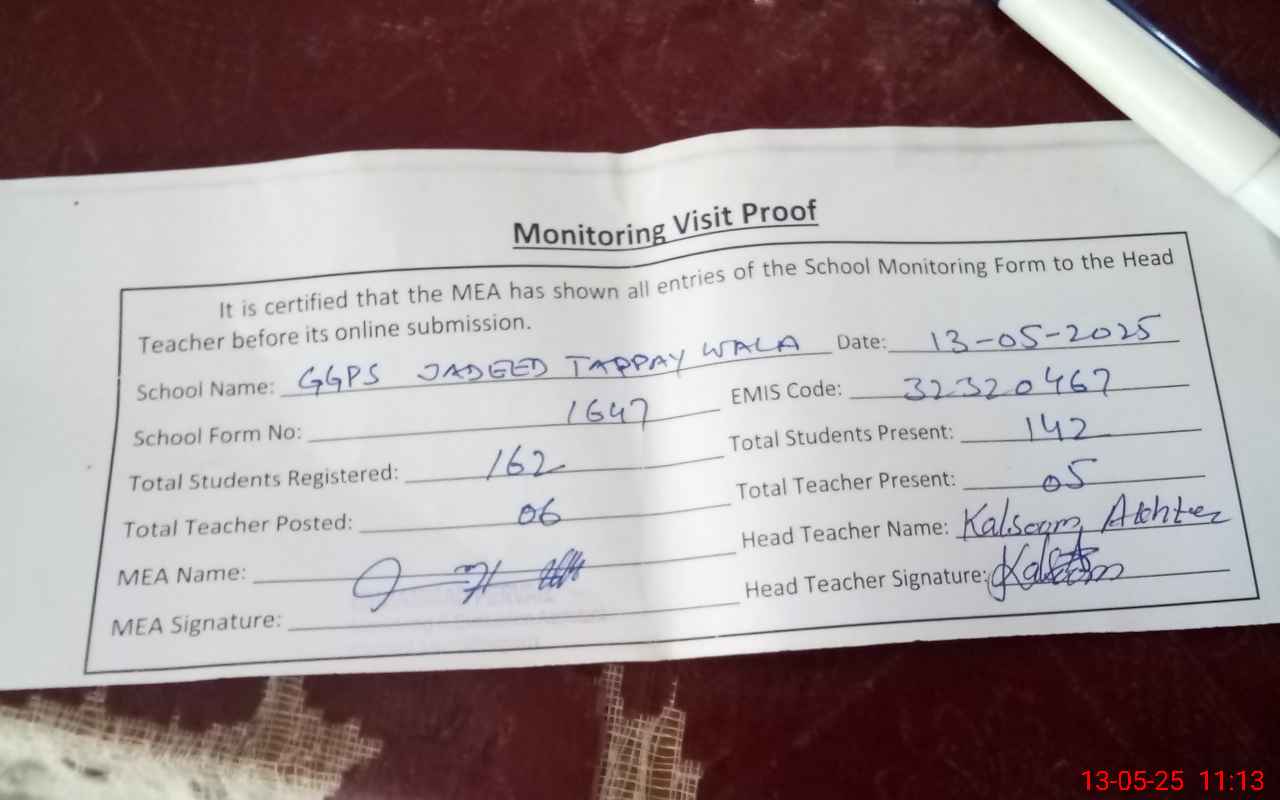 Monitoring Visit Proof
It is certified that the MEA has shown all entries of the School Monitoring Form to the Head
Teacher before its online submission.
School Name: GGPS JADEED TAPPAY WALA Date: 13-05-2025
School Form No: 1647 EMIS Code: 32320467
Total Students Registered: 162 Total Students Present: 142
Total Teacher Posted: 06 Total Teacher Present: 05
MEA Name: Head Teacher Name: Kalsoom Akhter
MEA Signature: Head Teacher Signature: Kalsoom
13-05-25 11:13